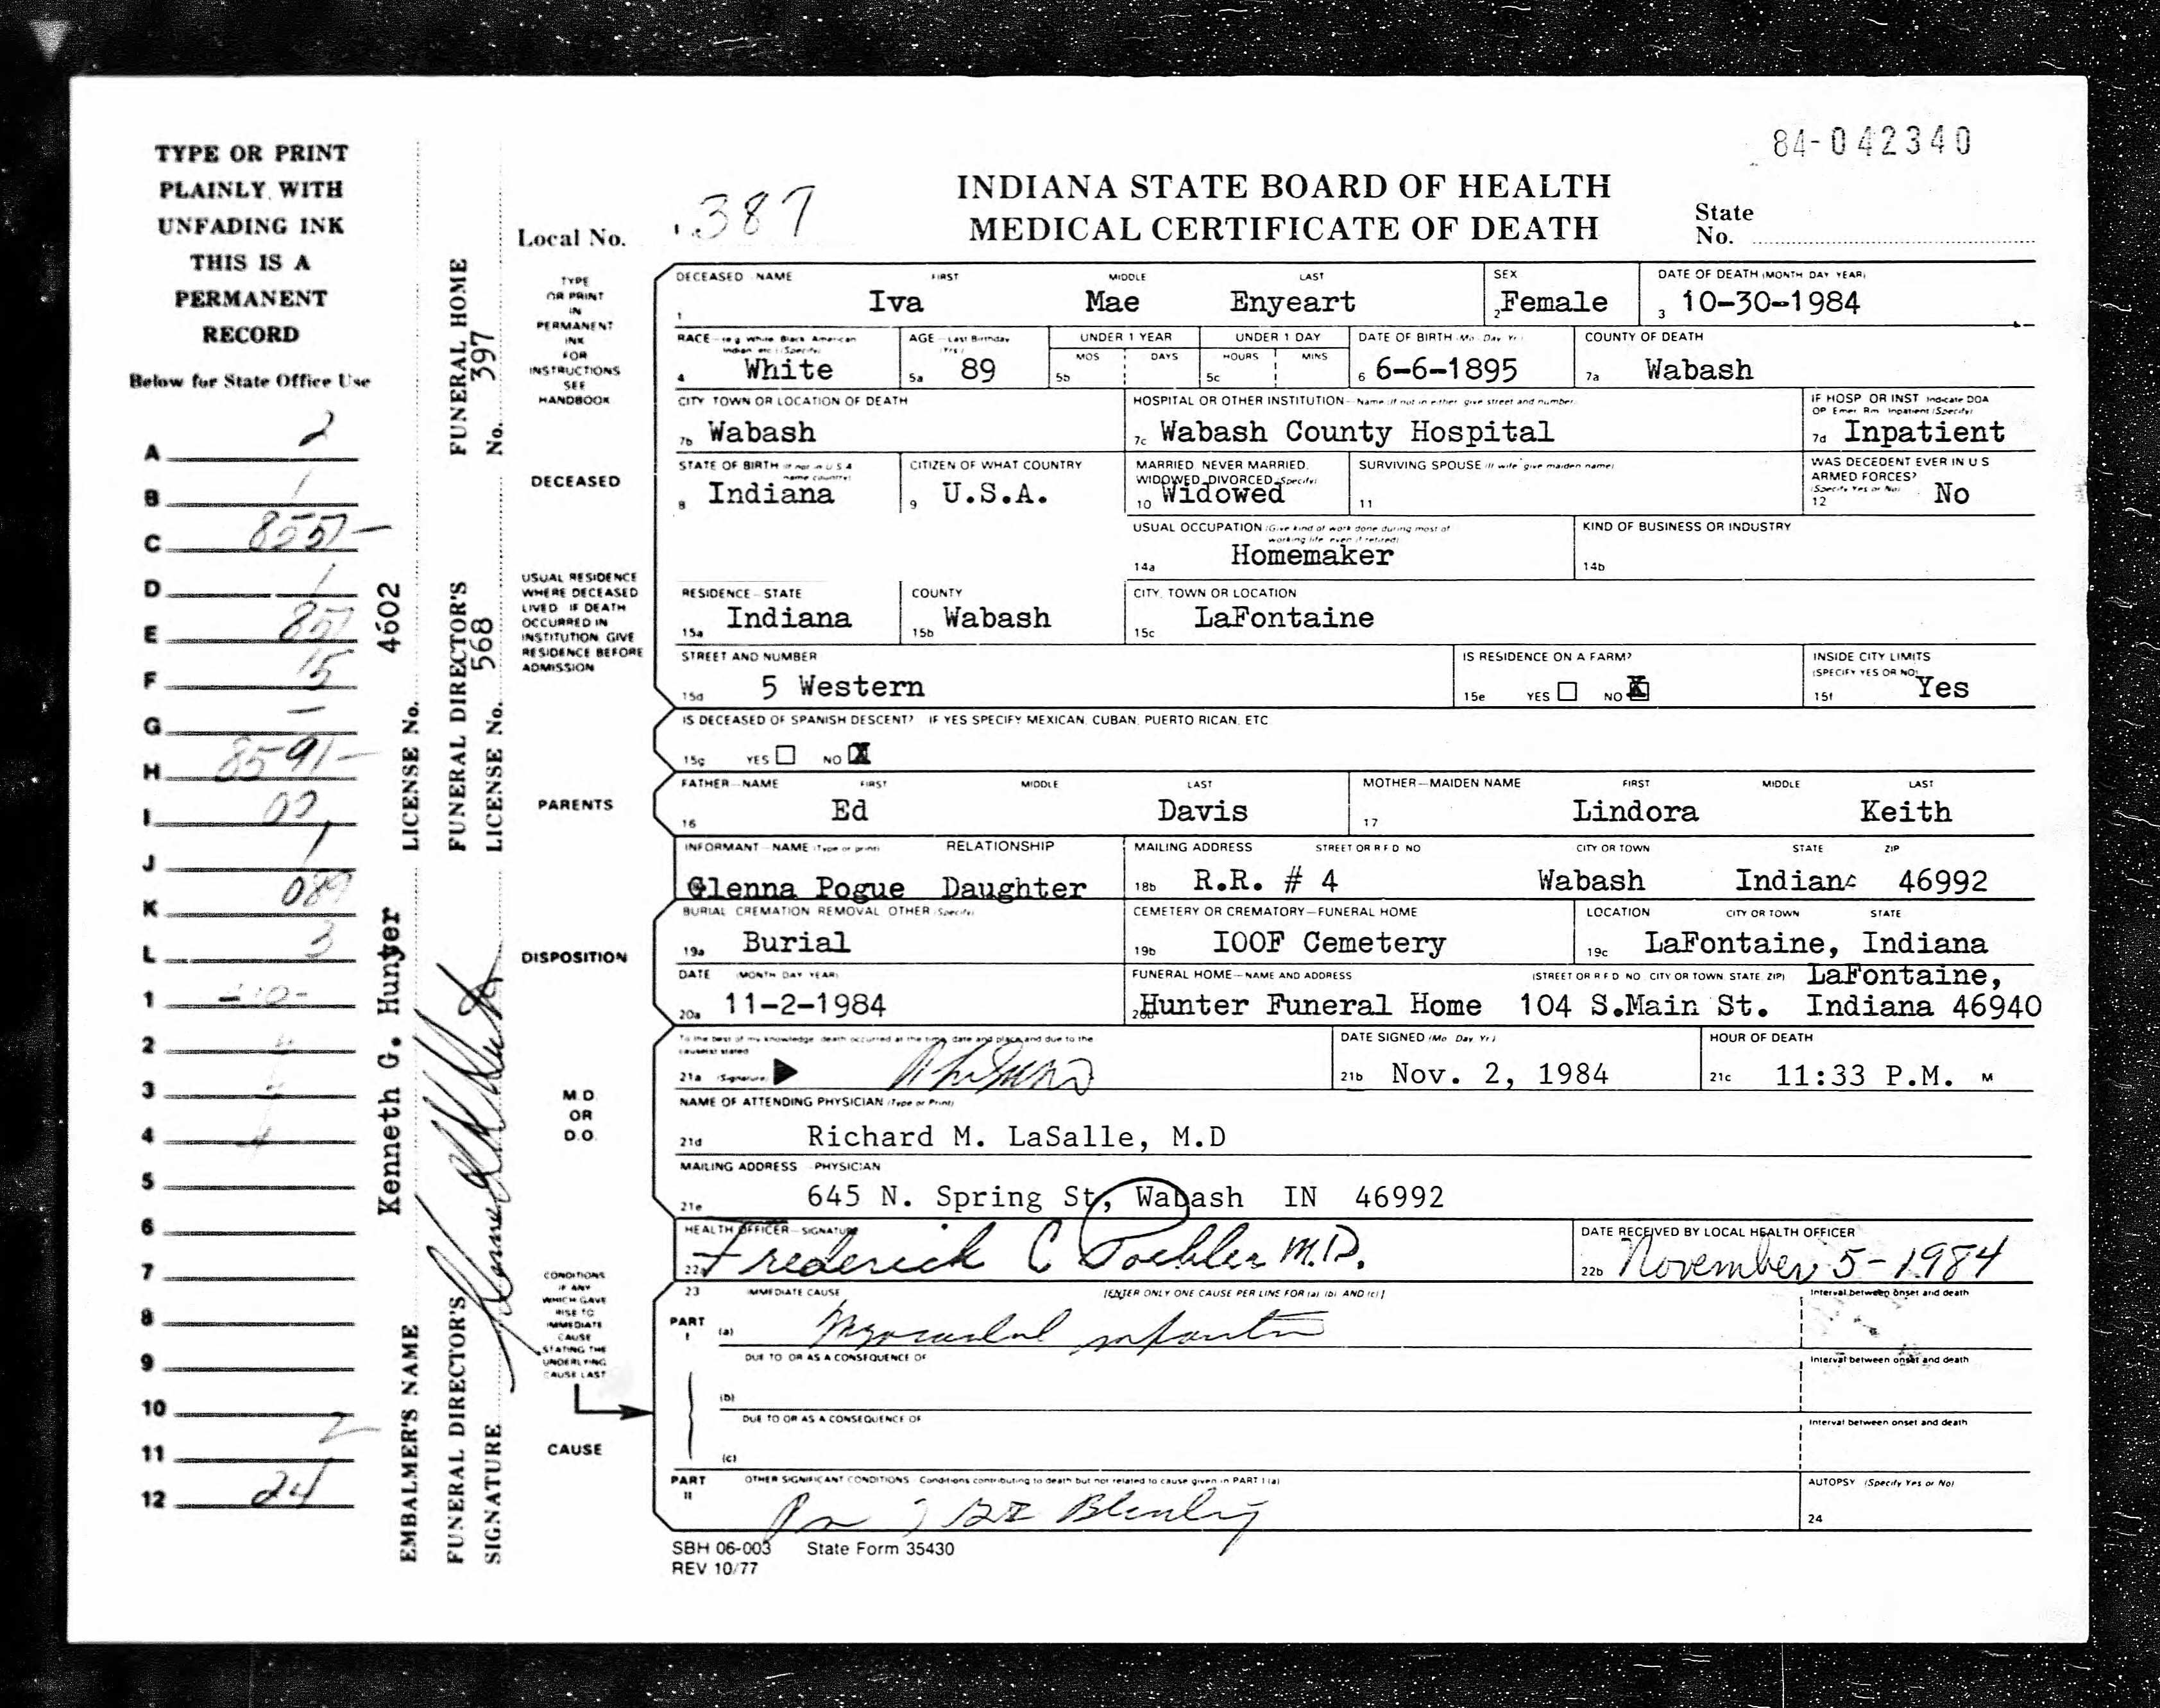 84-042340
TYPE OR PRINT
PLAINLY WITH
UNFADING INK
THIS IS A
PERMANENT
RECORD
Below for State Office Use
A 2
B 1
C 8557-
D 1
E 857
F 15
G -
H 8591-
I
J 1
K 089
L 3
1
2
3
4
5
6
7
8
9
10
11 2
12 24
EMBALMER'S NAME Kenneth G. Hunter LICENSE No. 4602
FUNERAL DIRECTOR'S SIGNATURE
FUNERAL DIRECTOR'S LICENSE No. 568
FUNERAL HOME No. 397
INDIANA STATE BOARD OF HEALTH
MEDICAL CERTIFICATE OF DEATH
Local No. 387
State
No.
TYPE
OR PRINT
IN
PERMANENT
INK
FOR
INSTRUCTIONS
SEE
HANDBOOK
DECEASED NAME FIRST MIDDLE LAST SEX DATE OF DEATH (MONTH DAY YEAR)
1 Iva Mae Enyeart 2 Female 3 10-30-1984
RACE - (e g White Black American Indian etc) (Specify) AGE - Last Birthday (Yrs) UNDER 1 YEAR UNDER 1 DAY DATE OF BIRTH (Mo Day Yr) COUNTY OF DEATH
MOS DAYS HOURS MINS
4 White 5a 89 5b 5c 6 6-6-1895 7a Wabash
CITY TOWN OR LOCATION OF DEATH HOSPITAL OR OTHER INSTITUTION - Name (If not in either give street and number) IF HOSP OR INST Indicate DOA OP Emer Rm Inpatient (Specify)
7b Wabash 7c Wabash County Hospital 7d Inpatient
DECEASED
STATE OF BIRTH (If not in U S A name country) CITIZEN OF WHAT COUNTRY MARRIED, NEVER MARRIED, WIDOWED, DIVORCED (Specify) SURVIVING SPOUSE (If wife give maiden name) WAS DECEDENT EVER IN U S ARMED FORCES? (Specify Yes or No)
8 Indiana 9 U.S.A. 10 Widowed 11 12 No
USUAL OCCUPATION (Give kind of work done during most of working life even if retired) KIND OF BUSINESS OR INDUSTRY
14a Homemaker 14b
USUAL RESIDENCE
WHERE DECEASED
LIVED IF DEATH
OCCURRED IN
INSTITUTION GIVE
RESIDENCE BEFORE
ADMISSION
RESIDENCE - STATE COUNTY CITY, TOWN OR LOCATION
15a Indiana 15b Wabash 15c LaFontaine
STREET AND NUMBER IS RESIDENCE ON A FARM? INSIDE CITY LIMITS (SPECIFY YES OR NO)
15d 5 Western 15e YES NO X 15f Yes
IS DECEASED OF SPANISH DESCENT? IF YES SPECIFY MEXICAN, CUBAN, PUERTO RICAN, ETC
15g YES NO X
PARENTS
FATHER - NAME FIRST MIDDLE LAST MOTHER - MAIDEN NAME FIRST MIDDLE LAST
16 Ed Davis 17 Lindora Keith
INFORMANT - NAME (Type or print) RELATIONSHIP MAILING ADDRESS STREET OR R F D NO CITY OR TOWN STATE ZIP
Glenna Pogue Daughter 18b R.R. # 4 Wabash Indiana 46992
DISPOSITION
BURIAL CREMATION REMOVAL OTHER (Specify) CEMETERY OR CREMATORY - FUNERAL HOME LOCATION CITY OR TOWN STATE
19a Burial 19b IOOF Cemetery 19c LaFontaine, Indiana
DATE (MONTH DAY YEAR) FUNERAL HOME - NAME AND ADDRESS (STREET OR R F D NO CITY OR TOWN STATE, ZIP) LaFontaine,
20a 11-2-1984 20b Hunter Funeral Home 104 S.Main St. Indiana 46940
M.D.
OR
D.O.
To the best of my knowledge death occurred at the time, date and place and due to the cause(s) stated DATE SIGNED (Mo Day Yr) HOUR OF DEATH
21a (Signature) 21b Nov. 2, 1984 21c 11:33 P.M. M
NAME OF ATTENDING PHYSICIAN (Type or Print)
21d Richard M. LaSalle, M.D
MAILING ADDRESS - PHYSICIAN
21e 645 N. Spring St, Wabash IN 46992
HEALTH OFFICER - SIGNATURE DATE RECEIVED BY LOCAL HEALTH OFFICER
22a Frederick C Poehler M.D. 22b November 5-1984
CONDITIONS
IF ANY
WHICH GAVE
RISE TO
IMMEDIATE
CAUSE
STATING THE
UNDERLYING
CAUSE LAST
CAUSE
23 IMMEDIATE CAUSE [ENTER ONLY ONE CAUSE PER LINE FOR (a) (b) AND (c)] Interval between onset and death
PART I (a) Myocardial infarction
DUE TO OR AS A CONSEQUENCE OF Interval between onset and death
(b)
DUE TO OR AS A CONSEQUENCE OF Interval between onset and death
(c)
PART II OTHER SIGNIFICANT CONDITIONS - Conditions contributing to death but not related to cause given in PART I (a) AUTOPSY (Specify Yes or No)
Bleeding 24
SBH 06-003 State Form 35430
REV 10/77